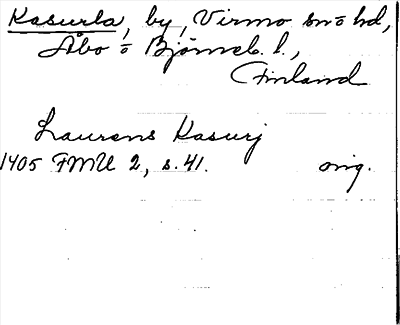 Kasurla, by, Virmo sn=o hd,
Åbo = Björneb. l.,
Finland
Laurens Kasurj
1405 FMU 2, s. 41. orig.